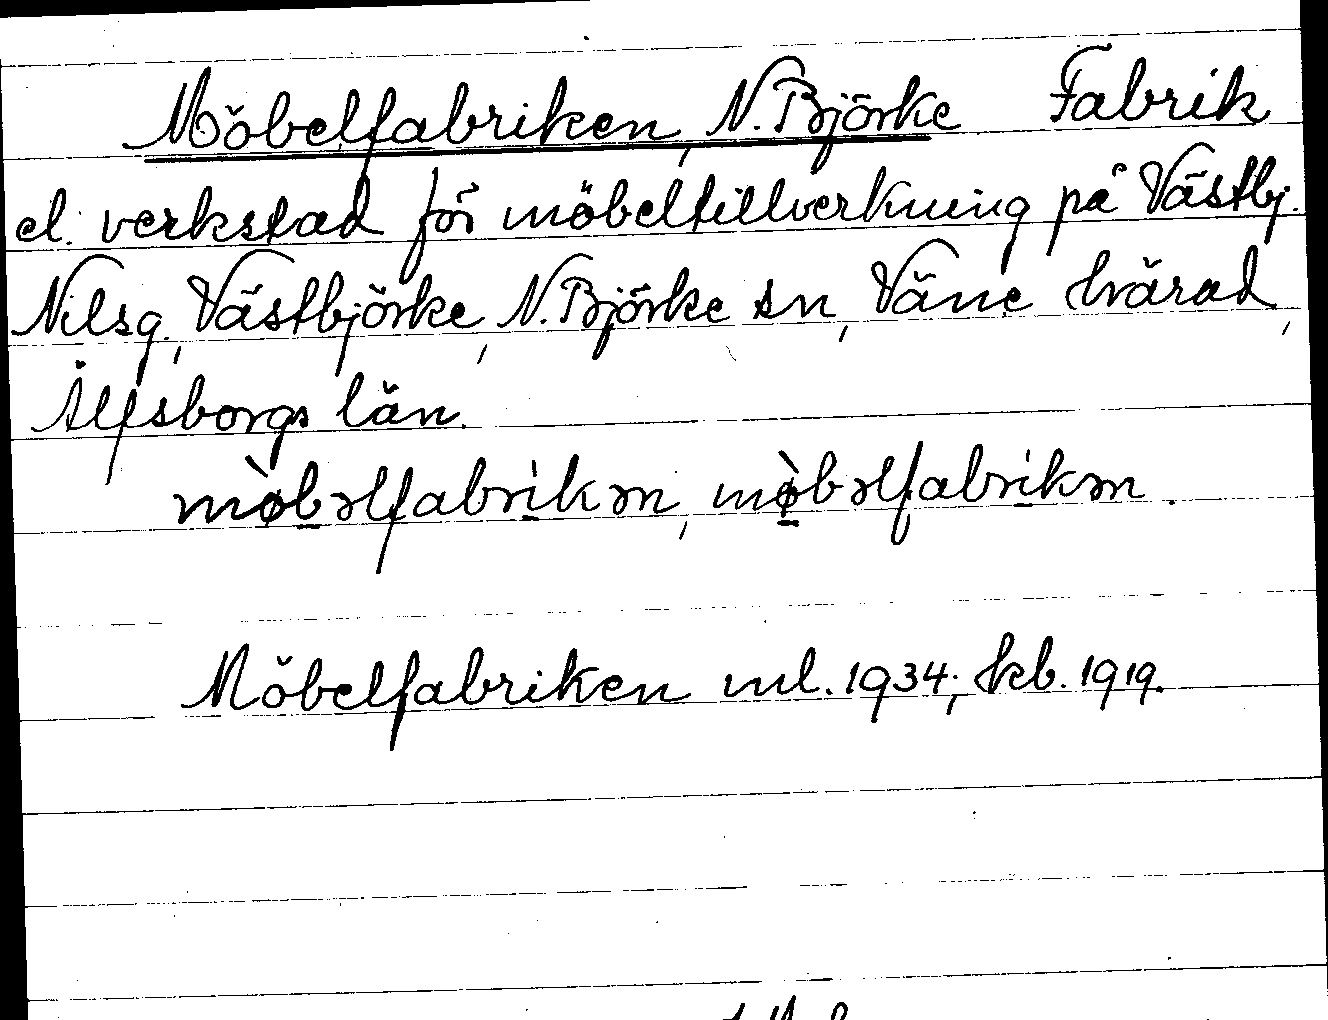 Möbelfabriken, N. Björke Fabrik
el. verkstad för möbeltillverkning på Västbj.
Nilsg., Västbjörke, N. Björke sn, Väne härad,
Älfsborgs län.
mø̀bəlfabrìkən, mø̀bəlfabrikən.
Möbelfabriken ml. 1934; kb. 1919.